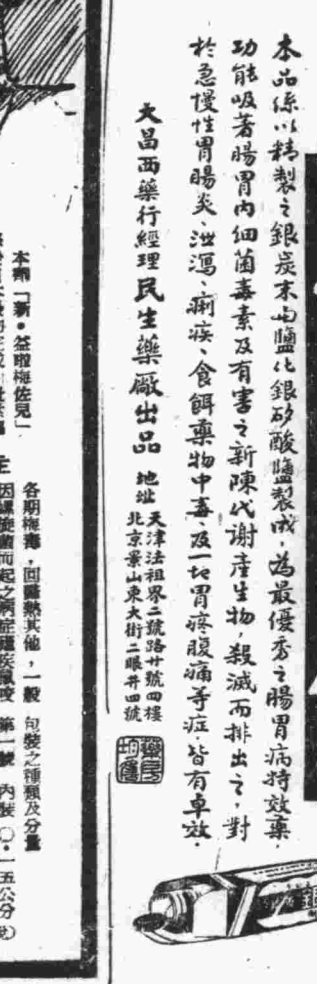 本品係以精製之銀炭末與鹽化銀矽酸鹽製成，為最優秀之腸胃病特效藥，
功能吸著腸胃內細菌毒素及有害之新陳代謝產生物，殺滅而排出之，對
於急慢性胃腸炎、泄瀉、痢疾、食餌藥物中毒、及一切胃疼腹痛等症，皆有卓效。
大昌西藥行經理民生藥廠出品
地址 天津法租界二號路廿號四樓
北京景山東大街二眼井四號
本劑「新・益啦梅佐兒」
各期梅毒，回歸熱其他，一般
因螺旋菌而起之病症
包裝之種類及分量
第一號 內裝 〇・一五公分
銀